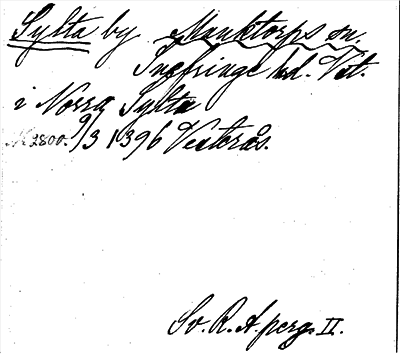 Sylta by Munktorps sn.
Snefringe hd. Vstl.
i Norra Sylta
N 2800. 9/3 1396 Vesterås.
Sv. R. A. perg. II.